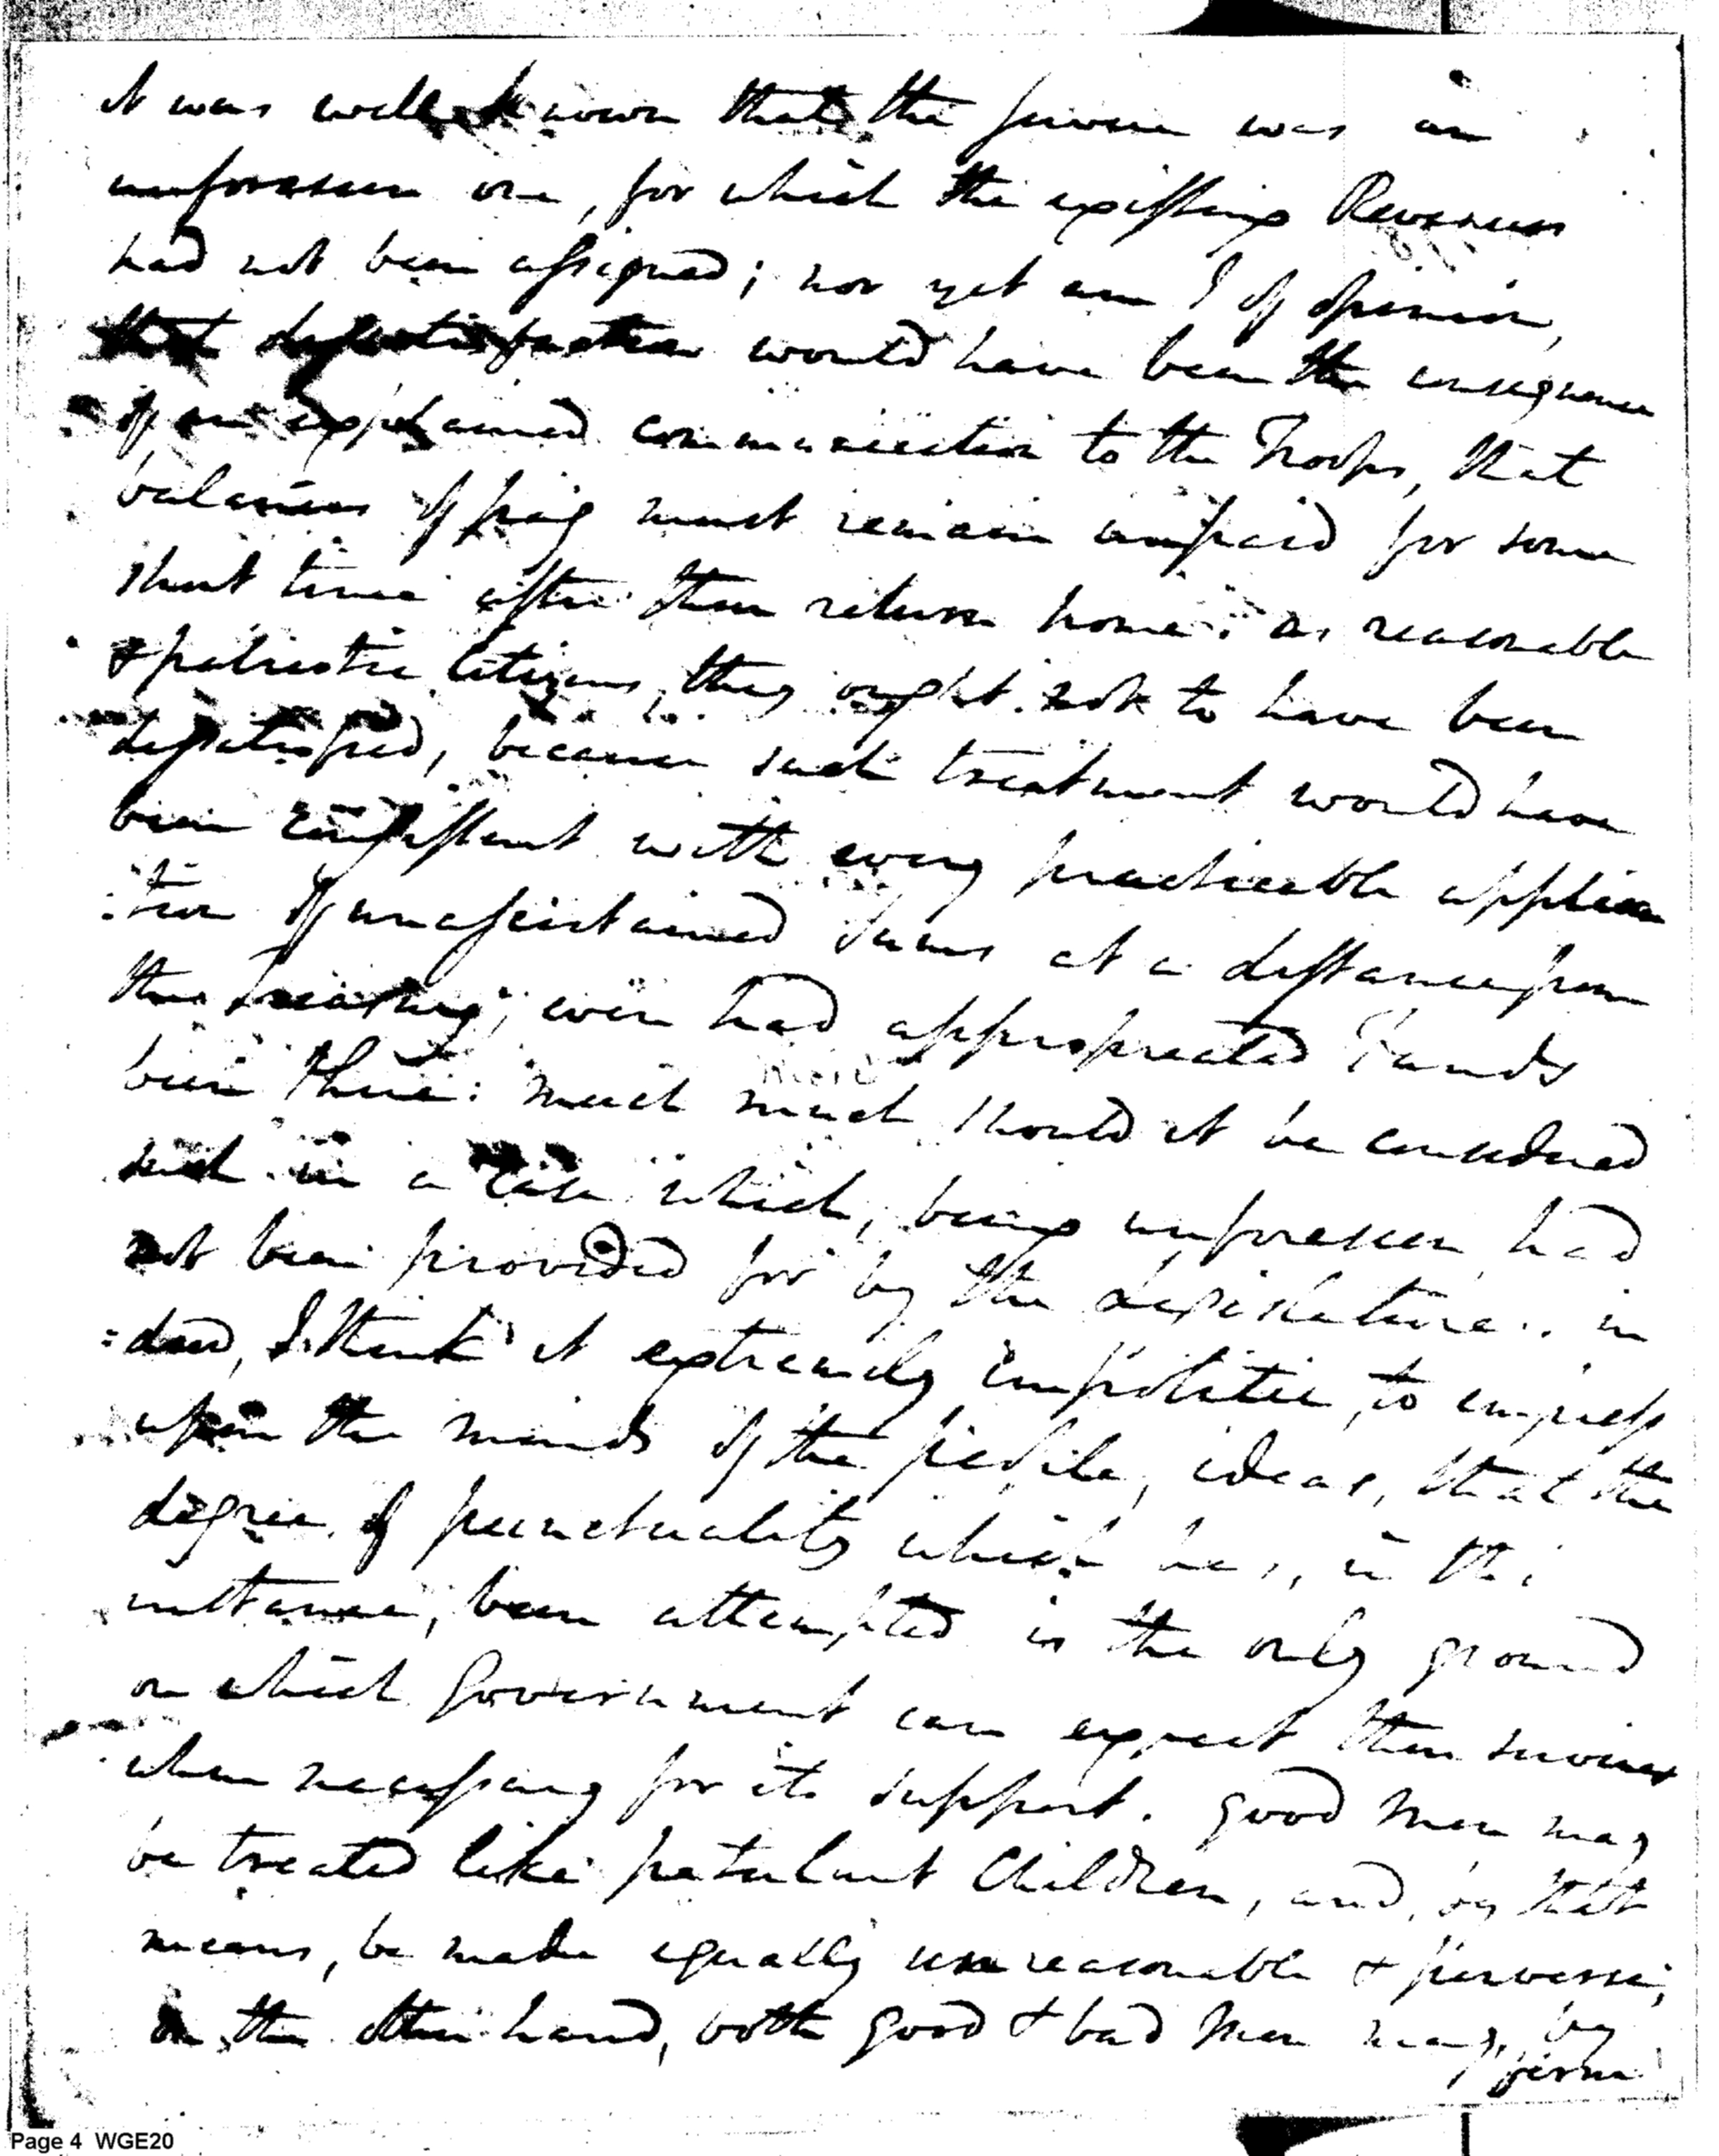 it was well known that the service was an
unforeseen one, for which the existing Revenues
had not been assigned; nor yet am I of opinion,
that dissatisfaction would have been the consequence
of an explained communication to the Troops, that
balances of pay must remain unpaid for some
short time after their return home: as reasonable
& patriotic Citizens, they ought not to have been
dissatisfied, because such treatment would have
been consistent with every practicable applica
:tion of unascertained Sums at a distance from
the treasury, even had appropriated Funds
been there: much much should it be considered
such in a case which, being unforeseen, had
not been provided for by the Legislature. in
:deed, I think it extremely impolitic, to impress
upon the minds of the people, ideas, that the
degree of punctuality which has, in this
instance, been attempted is the only ground
on which Government can expect their services
when necessary for its support. Good Men may
be treated like petulant Children, and, by that
means, be made equally unreasonable & perverse;
on the other hand, both good & bad Men may, by
firm
Page 4 WGE20